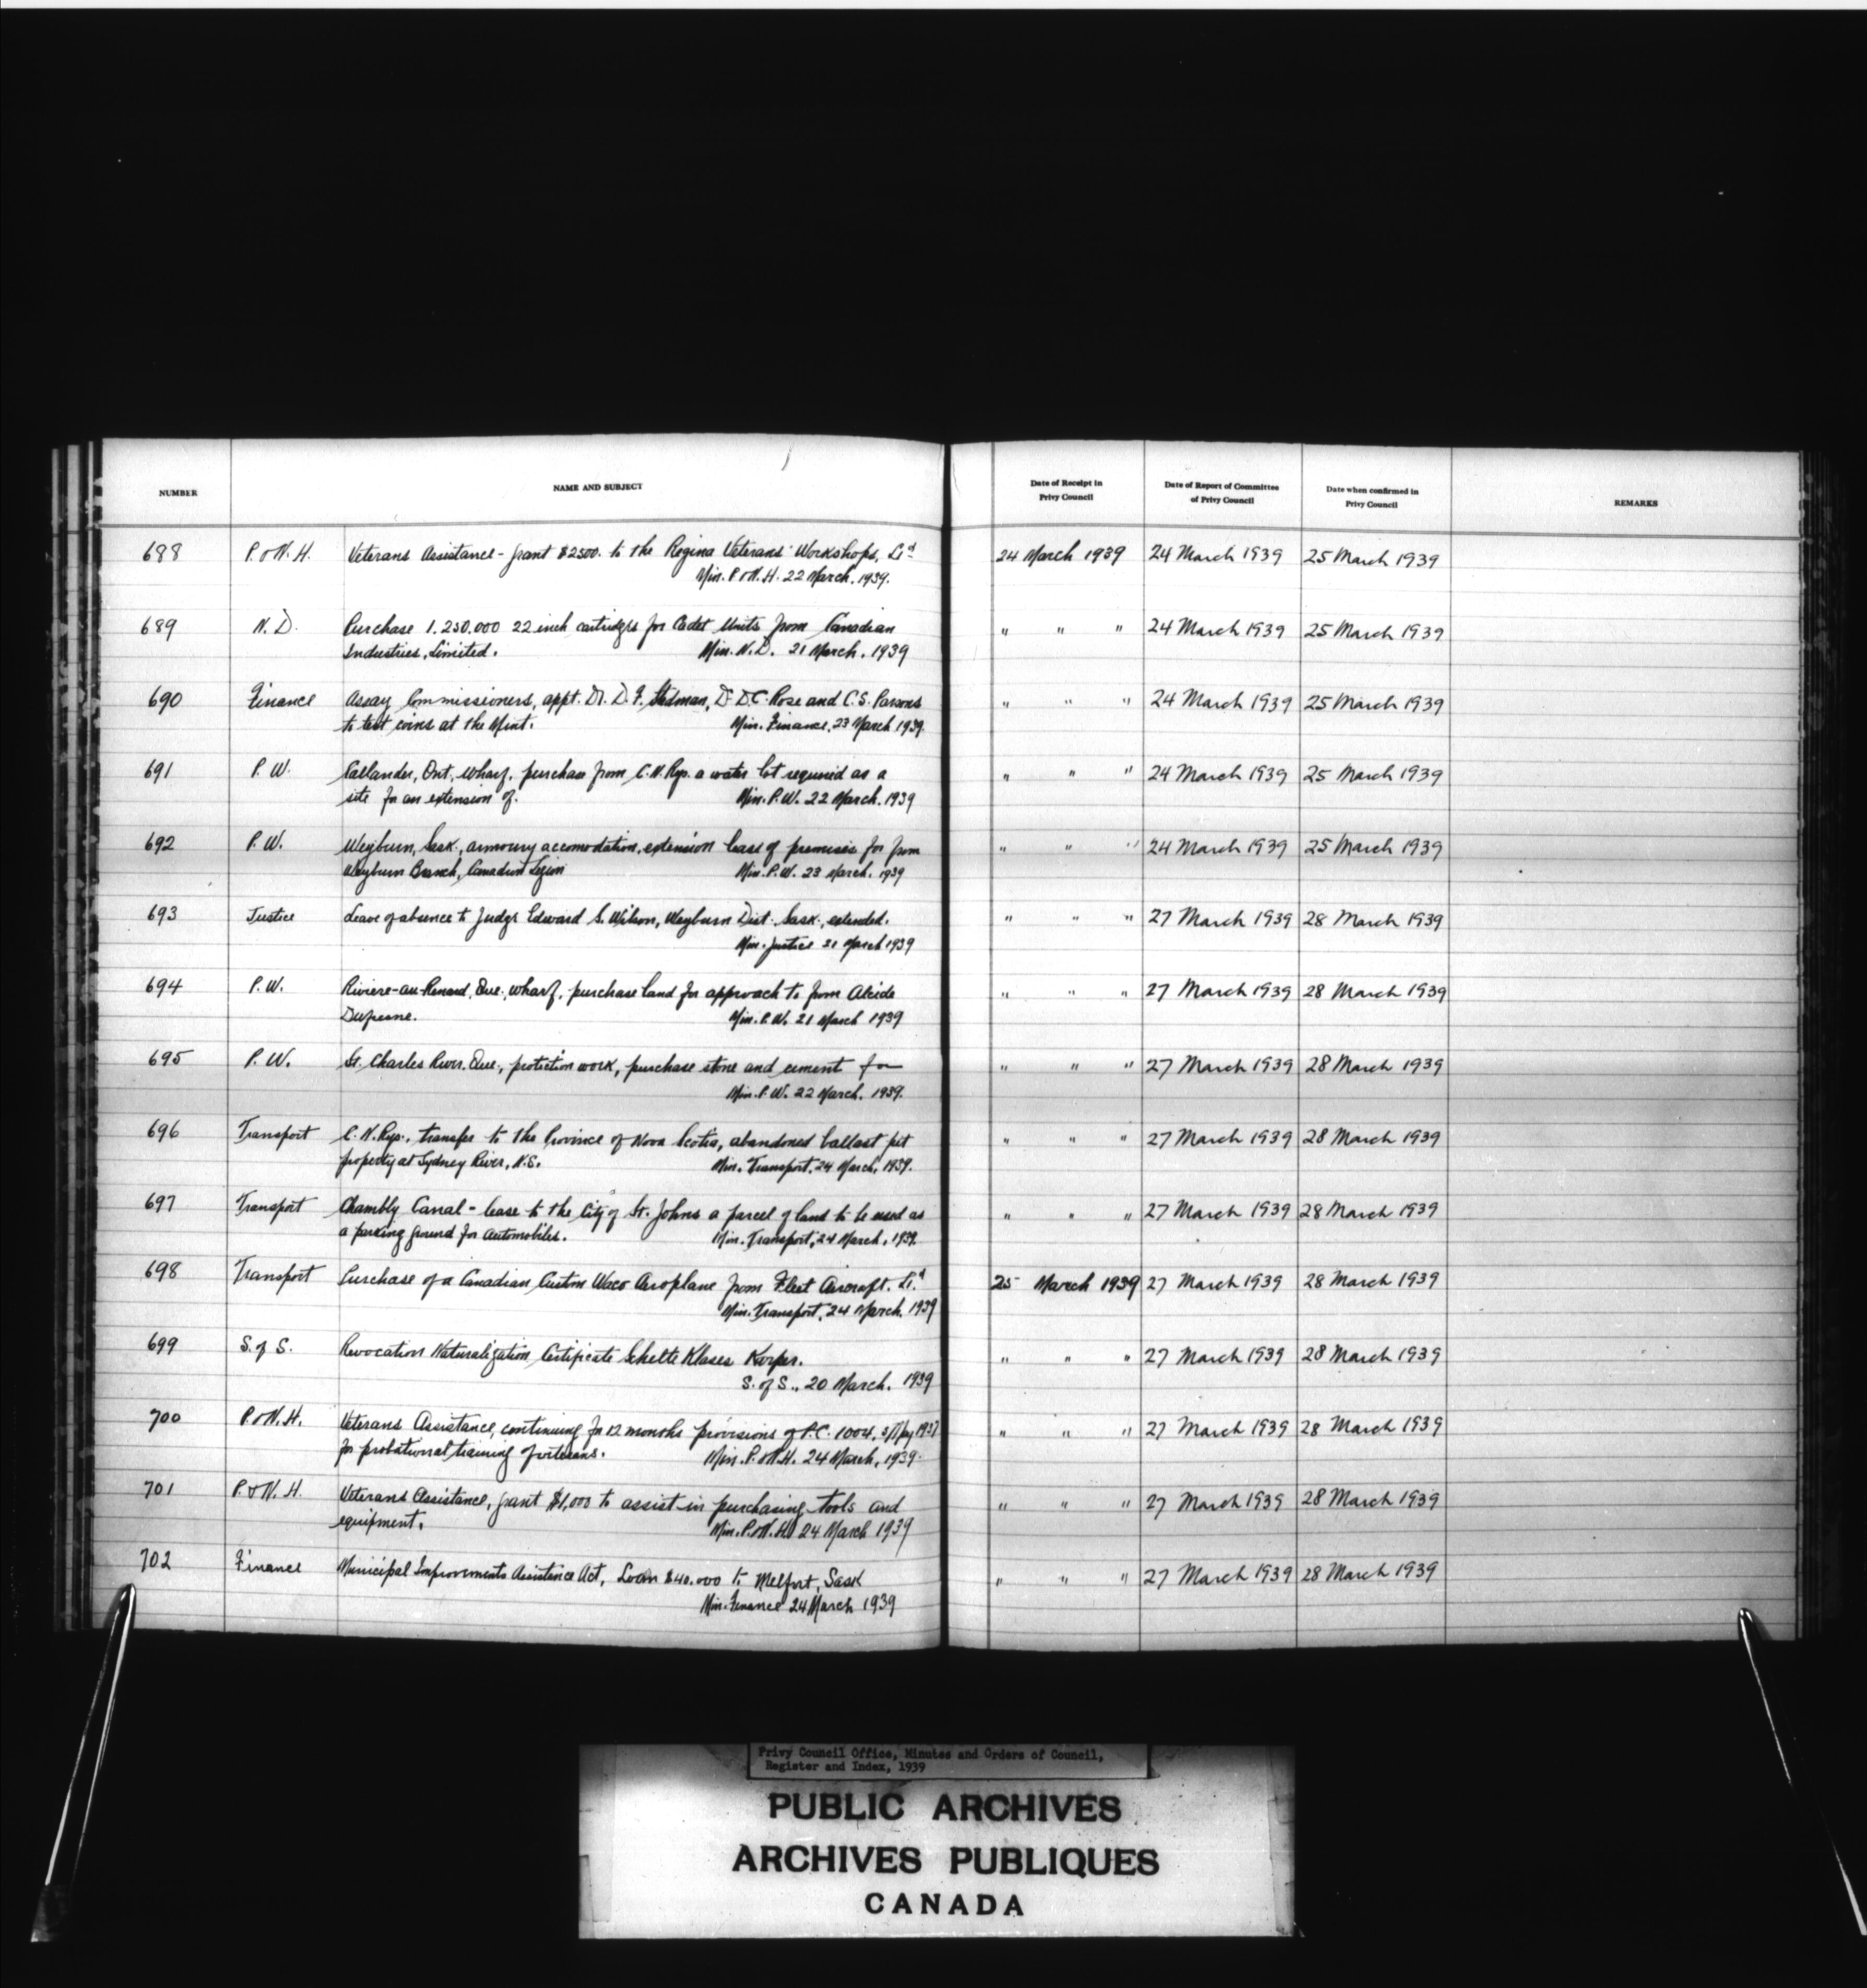 NUMBER NAME AND SUBJECT Date of Receipt in Privy Council Date of Report of Committee of Privy Council Date when confirmed in Privy Council REMARKS
688 P. & N. H. Veterans Assistance - grant $2500. to the Regina Veterans' Workshops, Ltd 24 March 1939 24 March 1939 25 March 1939
Min. P. & N. H. 22 March, 1939.
689 N. D. Purchase 1.250.000 22 inch cartridges for Cadet Units from Canadian " " " 24 March 1939 25 March 1939
Industries, Limited. Min. N. D. 21 March, 1939
690 Finance Assay Commissioners, appt. Dr. D. F. Stedman, Dr D.C. Rose and C.S. Parsons " " " 24 March 1939 25 March 1939
to test coins at the Mint. Min. Finance, 23 March 1939.
691 P. W. Callander, Ont., wharf, purchase from C.N. Rys. a water lot required as a " " " 24 March 1939 25 March 1939
site for an extension of. Min. P.W. 22 March. 1939
692 P. W. Weyburn, Sask., armoury accomodation, extension lease of premises for from " " " 24 March 1939 25 March 1939
Weyburn Branch, Canadian Legion Min. P.W. 23 March. 1939
693 Justice Leave of absence to Judge Edward S. Wilson, Weyburn Dist. Sask., extended. " " " 27 March 1939 28 March 1939
Min. Justice 21 March 1939
694 P. W. Riviere-au-Renard, Que., wharf, purchase land for approach to from Alcide " " " 27 March 1939 28 March 1939
Min. P.W. 21 March 1939
695 P. W. St. Charles River. Que., protection work, purchase stone and cement for " " " 27 March 1939 28 March 1939
Min. P. W. 22 March. 1939.
696 Transport C. N. Rys., transfer to the Province of Nova Scotia, abandoned ballast pit " " " 27 March 1939 28 March 1939
property at Sydney River, N.S. Min. Transport, 24 March, 1939.
697 Transport Chambly Canal - lease to the City of St. Johns a parcel of land to be used as " " " 27 March 1939 28 March 1939
a parking ground for automobiles. Min. Transport, 24 March, 1939.
698 Transport Purchase of a Canadian Custom Waco Aeroplane from Fleet Aircraft. Ltd 25 March 1939 27 March 1939 28 March 1939
Min. Transport, 24 March. 1939
699 S. of S. Revocation Naturalization Certificate Schelte Klases " " " 27 March 1939 28 March 1939
S. of S., 20 March. 1939
700 P. & N. H. Veterans Assistance, continuing for 12 months provisions of P.C. 1004, May 1937 " " " 27 March 1939 28 March 1939
for probational training of veterans. Min. P. & N.H. 24 March, 1939.
701 P. & N. H. Veterans Assistance, grant $1,000 to assist in purchasing tools and " " " 27 March 1939 28 March 1939
equipment. Min. P. & N. H. 24 March 1939
702 Finance Municipal Improvements Assistance Act, Loan $40.000 to Melfort, Sask " " " 27 March 1939 28 March 1939
Min. Finance 24 March 1939
Privy Council Office, Minutes and Orders of Council,
Register and Index, 1939
PUBLIC ARCHIVES
ARCHIVES PUBLIQUES
CANADA